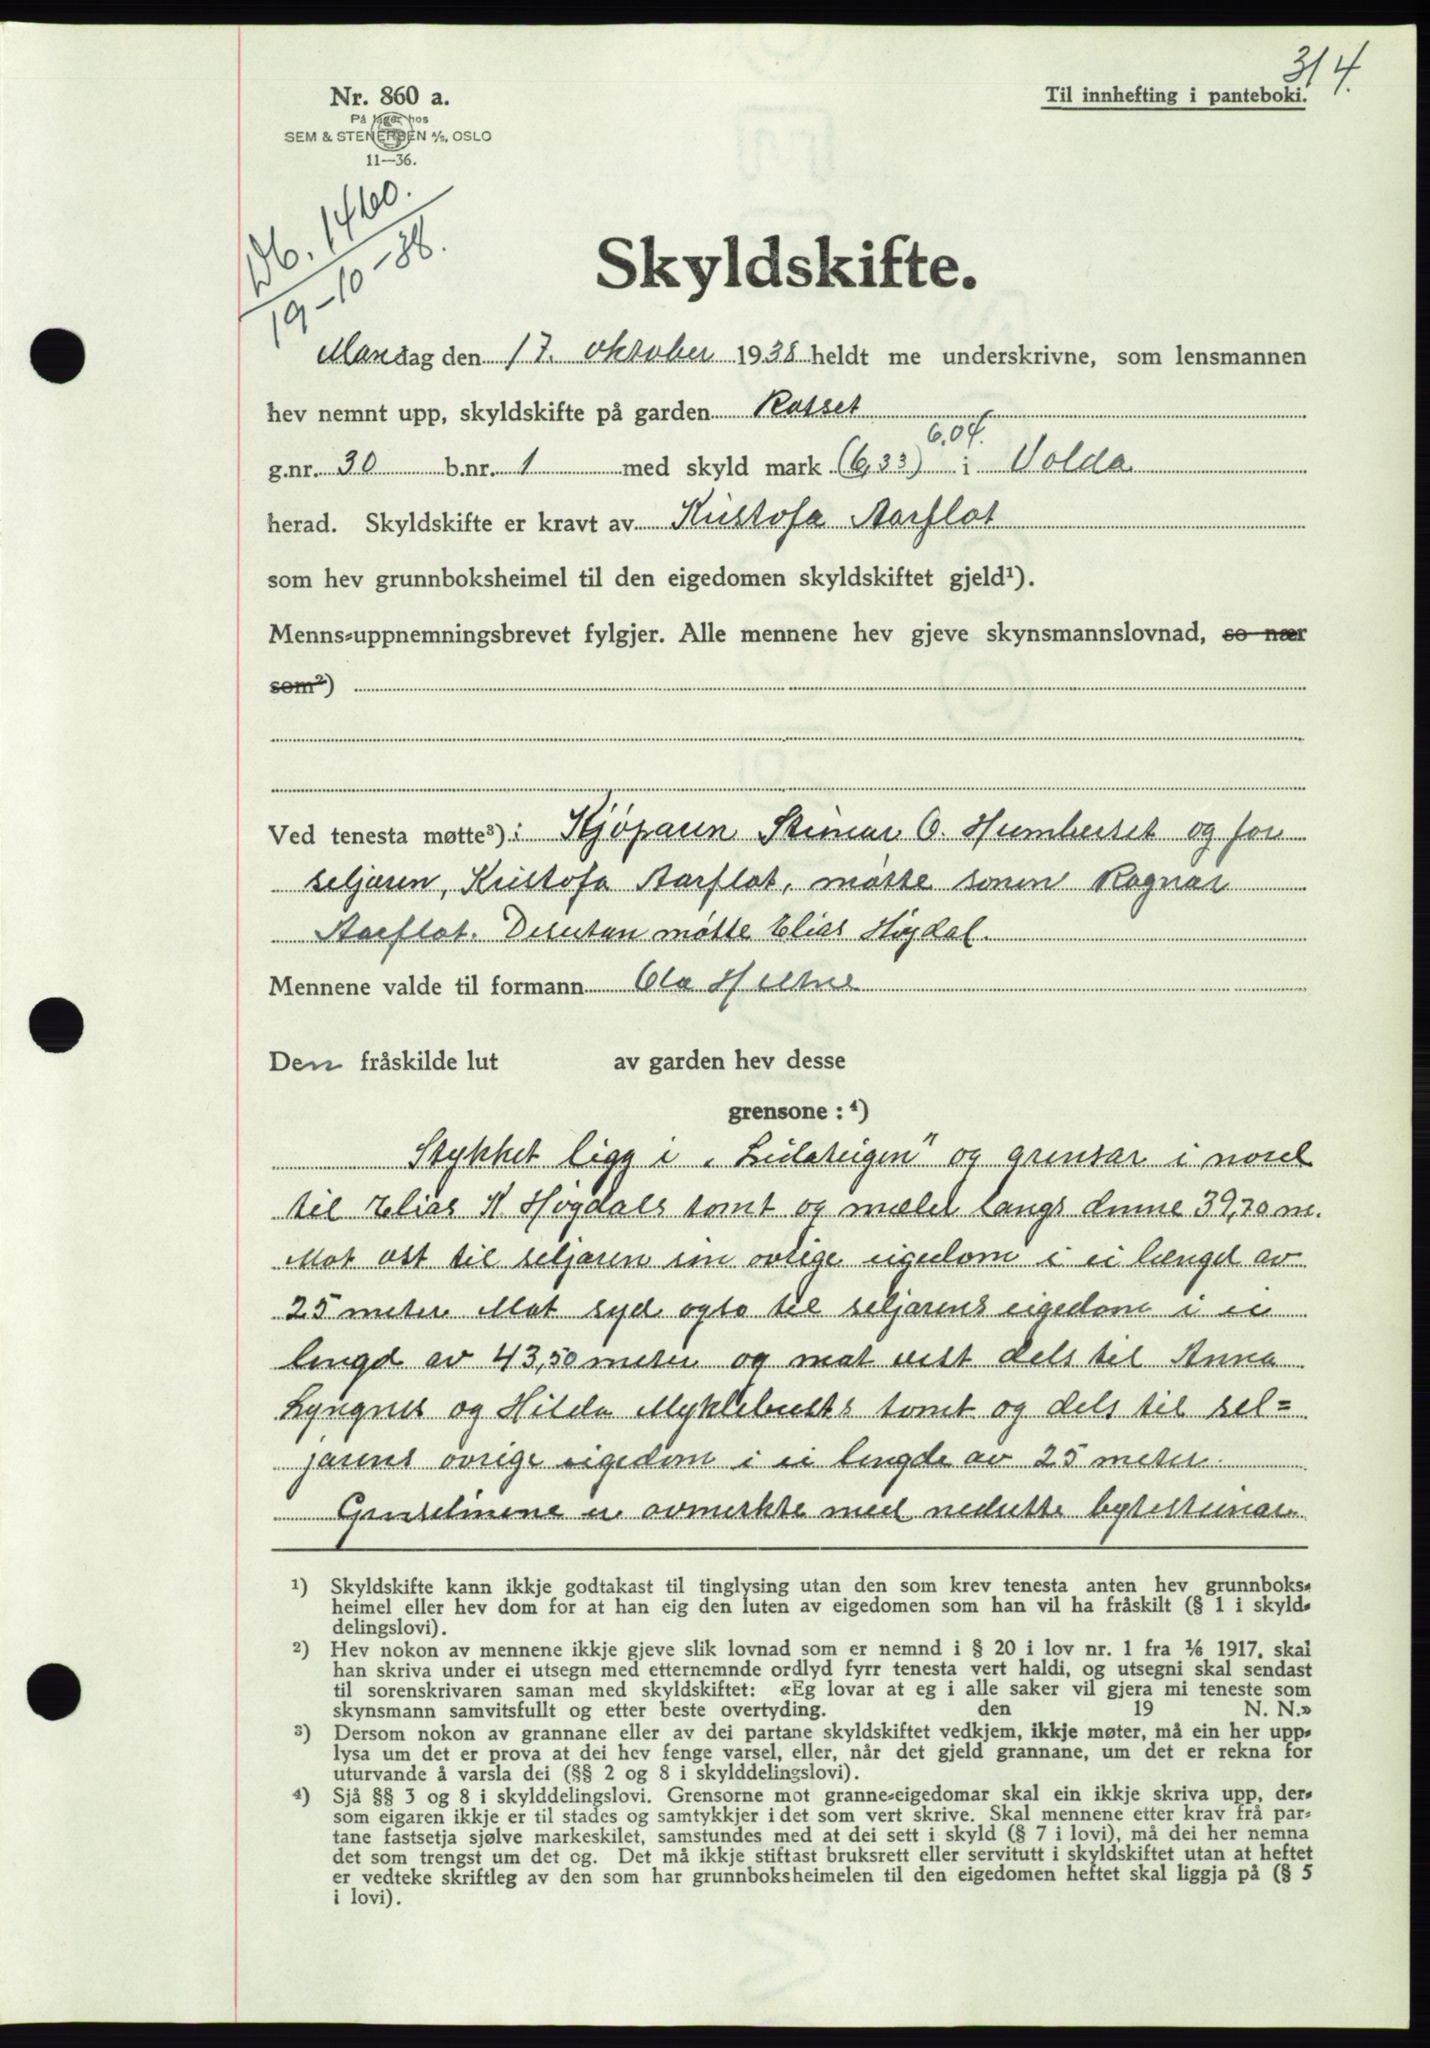 314.
Nr. 860 a.
Til innhefting i panteboki.
På lager hos
SEM & STENERSEN A/S, OSLO
11—36.
Db. 1460.
19-10-38.
Skyldskifte.
Mandag den 17. oktober 1938 heldt me underskrivne, som lensmannen
hev nemnt upp, skyldskifte på garden Rotset
g.nr. 30 b.nr. 1 med skyld mark (6,33) 6,04. i Volda
herad. Skyldskifte er kravt av Kristofa Aarflot
som hev grunnboksheimel til den eigedomen skyldskiftet gjeld¹).
Menns-uppnemningsbrevet fylgjer. Alle mennene hev gjeve skynsmannslovnad, so nær
som²)
Ved tenesta møtte³): Kjöparen Steinar O. Humberset og for
seljaren, Kristofa Aarflot, møtte sonen Ragnar
Aarflot. Desutan møtte Elias Høgdal.
Mennene valde til formann Ola Heltne
Den fråskilde lut av garden hev desse
grensone: ⁴)
Stykket ligg i „Leilateigen" og grensar i nord
til Elias K. Høgdals tomt og mæler langs denne 39,70 m.
Mot ost til seljaren sin ovrige eigedom i ei længd av
25 meter Mot syd ogso til seljarens eigedom i ei
lengd av 43,50 meter og mot vest dels til Anna
Lyngnes og Hilda Myklebusts tomt og dels til sel=
jarens ovrige eigedom i ei lengde av 25 meter.
Grenselinene er avmerkte med nedsette bytesteinar.
¹) Skyldskifte kann ikkje godtakast til tinglysing utan den som krev tenesta anten hev grunnboks-
heimel eller hev dom for at han eig den luten av eigedomen som han vil ha fråskilt (§ 1 i skyld-
delingslovi).
²) Hev nokon av mennene ikkje gjeve slik lovnad som er nemnd i § 20 i lov nr. 1 fra ¹⁄₆ 1917, skal
han skriva under ei utsegn med etternemnde ordlyd fyrr tenesta vert haldi, og utsegni skal sendast
til sorenskrivaren saman med skyldskiftet: «Eg lovar at eg i alle saker vil gjera mi teneste som
skynsmann samvitsfullt og etter beste overtyding. den 19 N. N.»
³) Dersom nokon av grannane eller av dei partane skyldskiftet vedkjem, ikkje møter, må ein her upp-
lysa um det er prova at dei hev fenge varsel, eller, når det gjeld grannane, um det er rekna for
uturvande å varsla dei (§§ 2 og 8 i skylddelingslovi).
⁴) Sjå §§ 3 og 8 i skylddelingslovi. Grensorne mot granne-eigedomar skal ein ikkje skriva upp, der-
som eigaren ikkje er til stades og samtykkjer i det som vert skrive. Skal mennene etter krav frå par-
tane fastsetja sjølve markeskilet, samstundes med at dei sett i skyld (§ 7 i lovi), må dei her nemna
det som trengst um det og. Det må ikkje stiftast bruksrett eller servitutt i skyldskiftet utan at heftet
er vedteke skriftleg av den som har grunnboksheimelen til den eigedomen heftet skal liggja på (§ 5
i lovi).